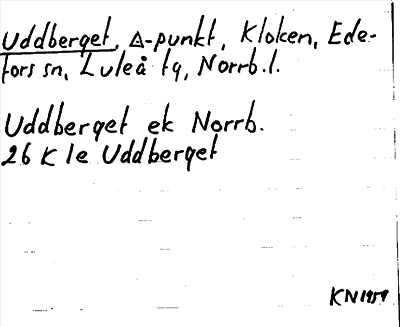 Uddberget, △-punkt, Kloken, Ede-
fors sn, Luleå tg, Norrb.l.
Uddberget ek Norrb.
26 K 1e Uddberget
KN 1959